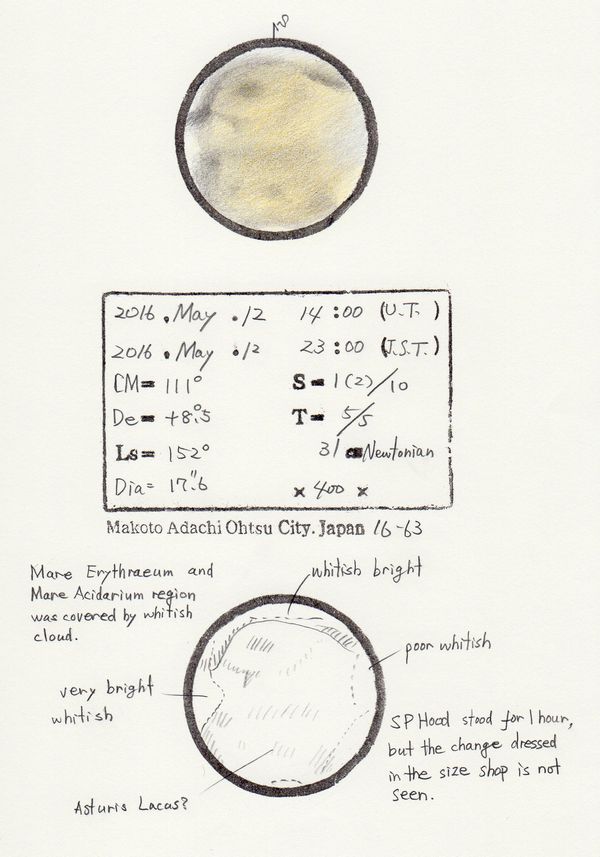 2016 . May . 12 14:00 (U.T. )
2016 . May . 12 23:00 (J.S.T.)
CM= 111° S= 1(2)/10
De= +8.°5 T= 5/5
Ls= 152° 31 cm Newtonian
Dia= 17."6 × 400 ×
Makoto Adachi Ohtsu City. Japan 16-63
Mare Erythraeum and
Mare Acidarium region
was covered by whitish
cloud.
whitish bright
poor whitish
very bright
whitish
SP Hood stood for 1 hour,
but the change dressed
in the size shop is not
seen.
Asturis Lacus?